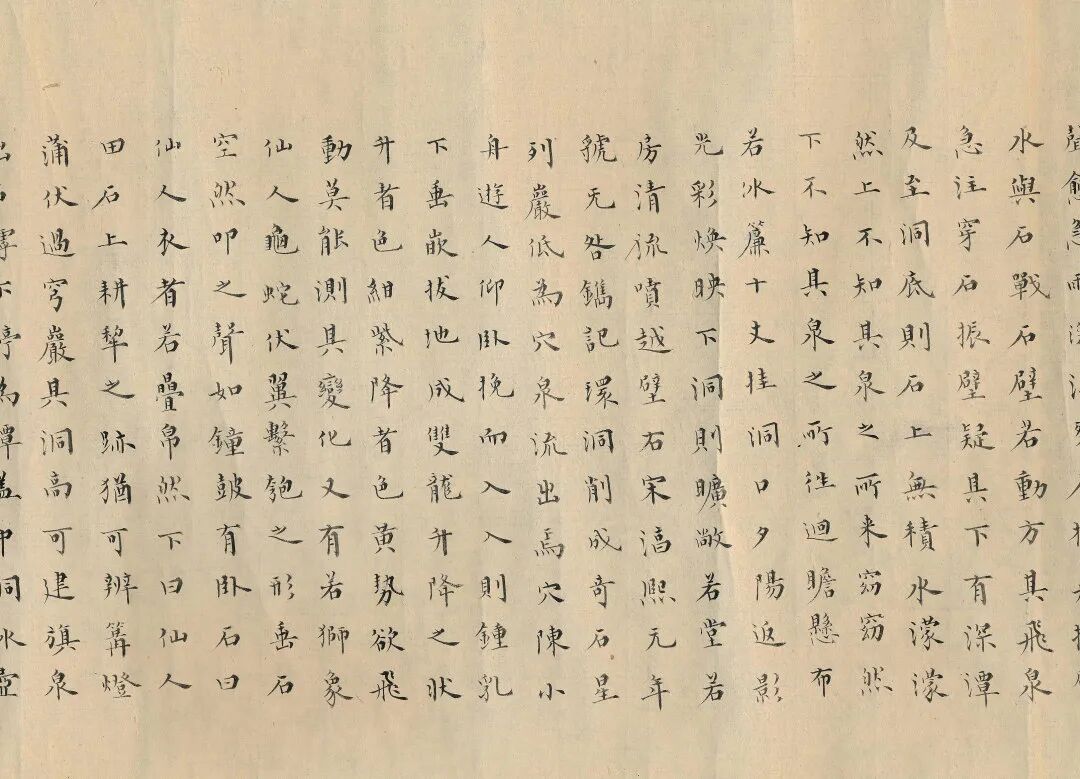 聲愈急雨
水與石戰石壁若動方其飛泉
急注穿石振壁疑其下有深潭
及至洞底則石上無積水濛濛
然上不知其泉之所来窈窈然
下不知其泉之所往迴瞻懸布
若冰簾十丈挂洞口夕陽返影
光彩煥映下洞則曠敞若堂若
房清流噴越壁右宋淳熙元年
號无咎鐫記環洞削成奇石星
列巖低為穴泉流出焉穴陳小
舟遊人仰臥挽而入入則鍾乳
下垂嵌拔地成雙龍升降之狀
升者色紺紫降者色黄勢欲飛
動莫能測其變化又有若獅象
仙人龜蛇伏翼繫匏之形垂石
空然叩之聲如鐘鼓有臥石曰
仙人衣者若疊帛然下曰仙人
田石上耕犁之跡猶可辨篝燈
蒲伏過穹巖其洞高可建旗泉
出石罅亦渟為潭蓋中洞冰壺